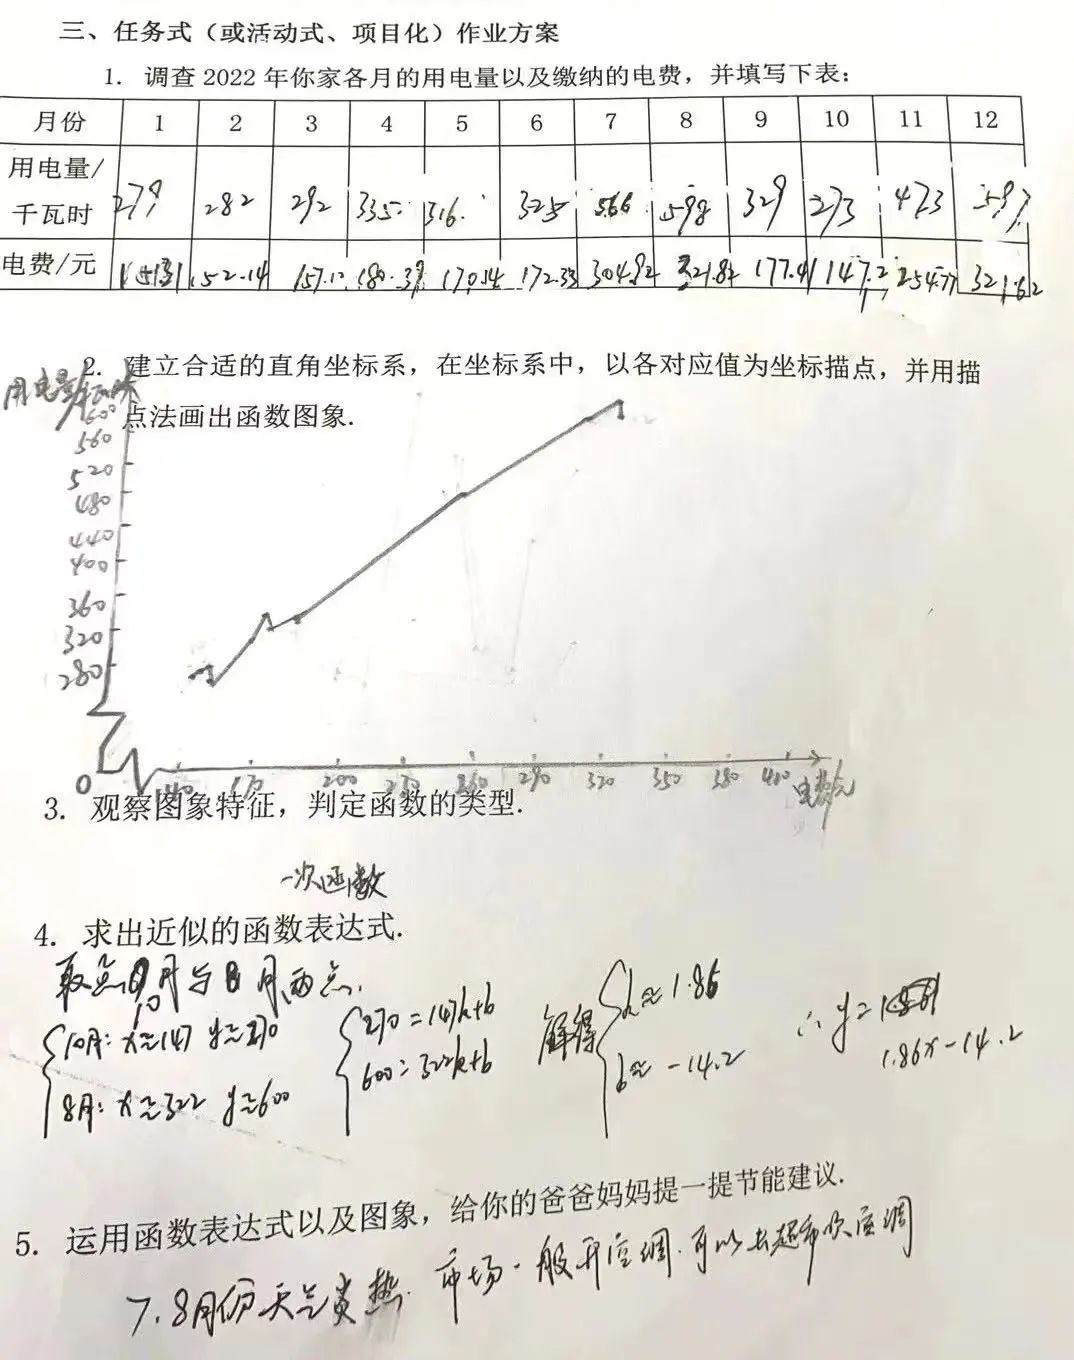 三、任务式（或活动式、项目化）作业方案
1. 调查 2022 年你家各月的用电量以及缴纳的电费，并填写下表：
月份 1 2 3 4 5 6 7 8 9 10 11 12
用电量/千瓦时 279 282 292 335 316 325 566 598 329 273 473 597
电费/元 152.14 157.1 180.39 170.14 172.33 304.92 321.82 177.41 147.2 254.77 321.62
2. 建立合适的直角坐标系，在坐标系中，以各对应值为坐标描点，并用描
点法画出函数图象.
用电量/千瓦时
600
560
520
480
440
400
360
320
280
0 140 170 200 230 260 290 320 350 380 410
电费/元
3. 观察图象特征，判定函数的类型.
一次函数
4. 求出近似的函数表达式.
取点10月与8月两点.
10月: x≈147 y≈270 270=147k+b 解得 k≈1.86 ∴ y=
8月: x≈322 y≈600 600=322k+b b≈-14.2 1.86x-14.2
5. 运用函数表达式以及图象，给你的爸爸妈妈提一提节能建议.
7.8月份天气炎热. 市场一般开空调.可以去超市吹空调